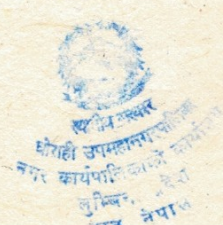 स्थानीय सरकार
घोराही उपमहानगरपालिका
नगर कार्यपालिकाको कार्यालय
लुम्बिनी प्रदेश
नेपाल